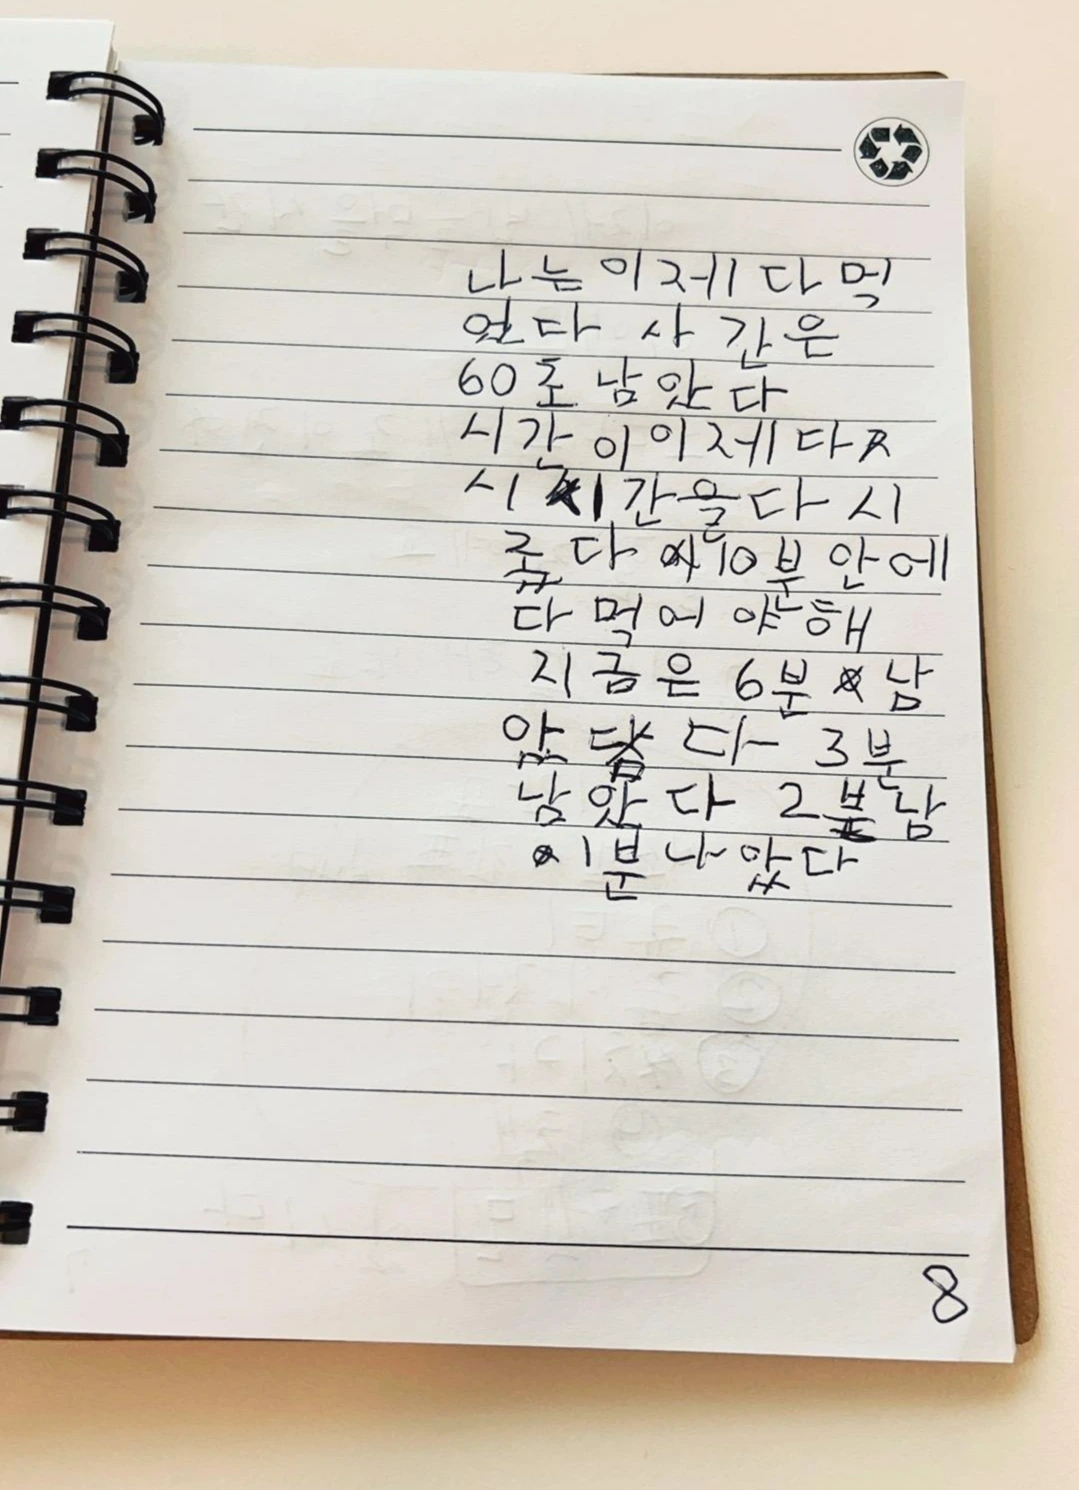 나는이제다먹
었다 사간은
60초남았다
시간이이제다ㅈ
시 간을다시
줐다 10분안에
다먹어얀해
지금은 6분 남
았 다 3분
남았다 2분남
1분나았다
8